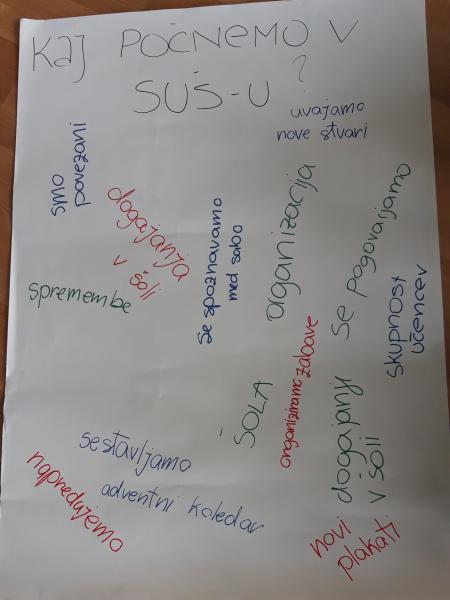 KAJ POČNEMO V
SUŠ-U?
uvajamo
nove stvari
smo
povezani
dogajanja
v šoli
se spoznavamo
med sabo
organizacija
se pogovarjamo
spremembe
skupnost
učencev
ŠOLA
organiziramo zabave
dogajanji
v šoli
sestavljamo
adventni koledar
napredujemo
novi
plakati